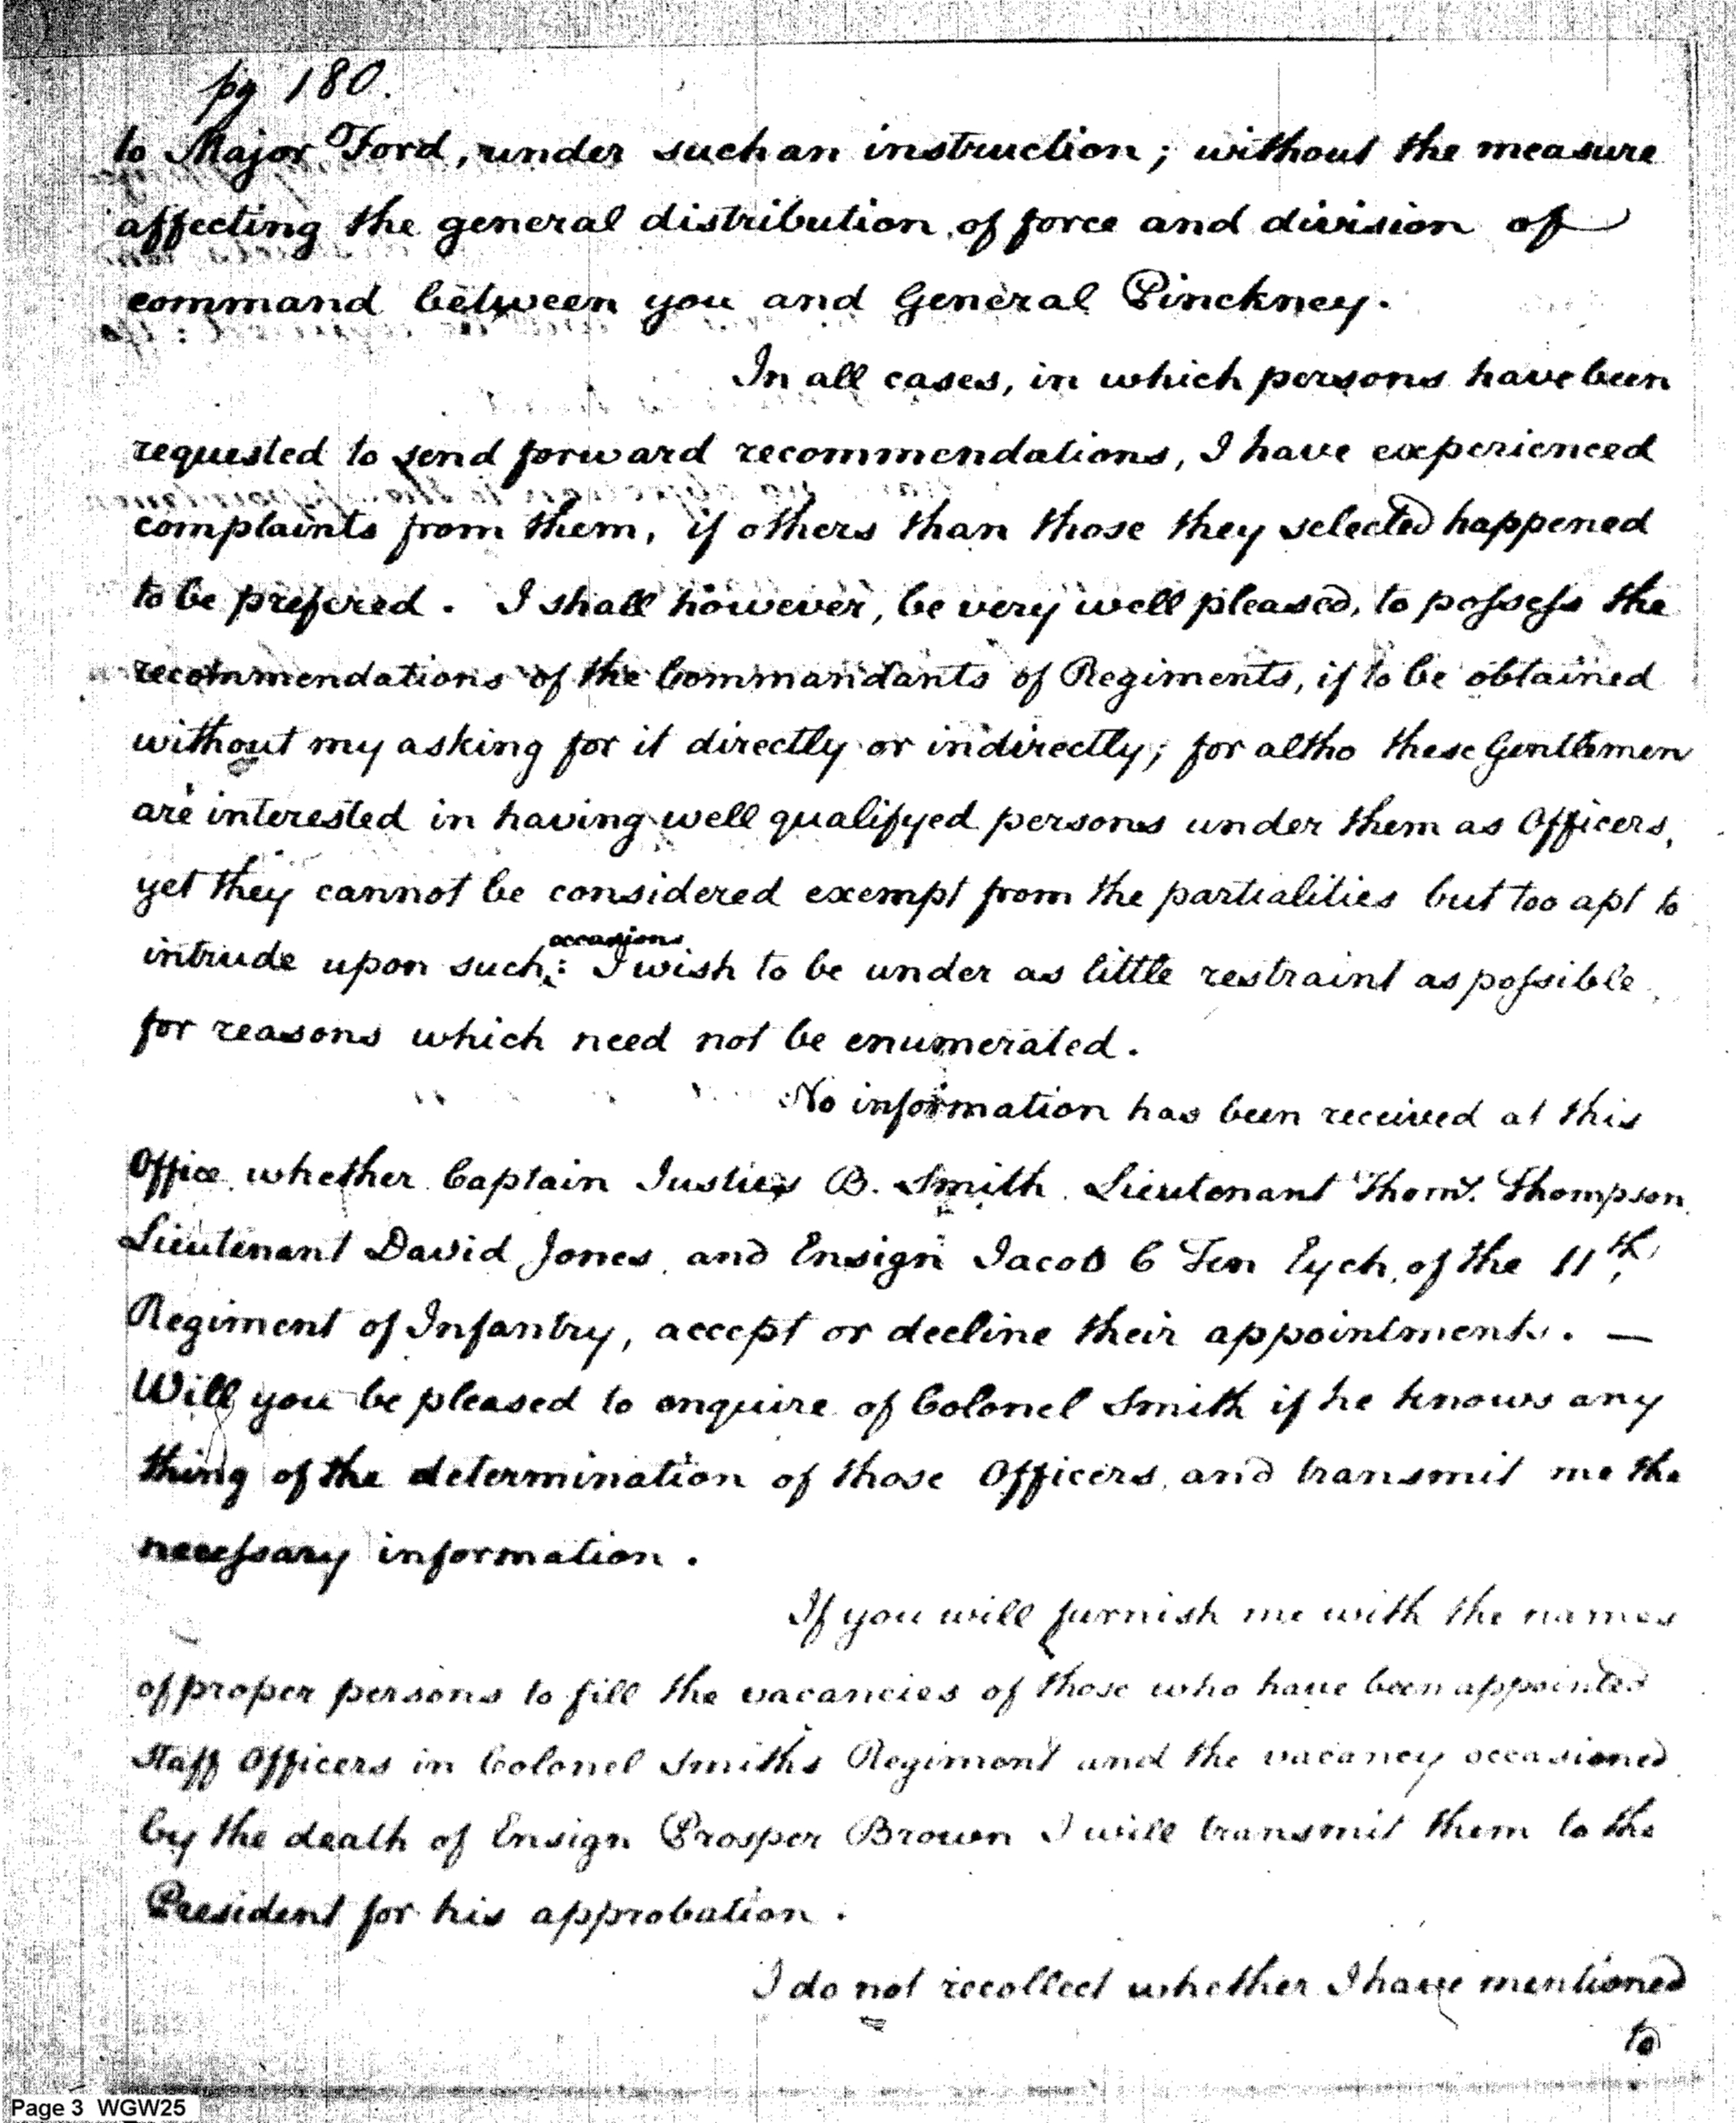 pg 180.
to Major Ford, under such an instruction; without the measure
affecting the general distribution of force and division of
command between you and General Pinckney.
In all cases, in which persons have been
requested to send forward recommendations, I have experienced
complaints from them, if others than those they selected happened
to be prefered. I shall however, be very well pleased, to possess the
recommendations of the Commandants of Regiments, if to be obtained
without my asking for it directly or indirectly; for altho these Gentlemen
are interested in having well qualifyed persons under them as Officers,
yet they cannot be considered exempt from the partialities but too apt to
occasions
intrude upon such: I wish to be under as little restraint as possible
for reasons which need not be enumerated.
No information has been received at this
Office whether Captain Justus B. Smith Lieutenant Thoms. Thompson
Lieutenant David Jones, and Ensign Jacob C Ten Eych, of the 11th
Regiment of Infantry, accept or decline their appointments. —
Will you be pleased to enquire of Colonel Smith if he knows any
thing of the determination of those Officers, and transmit me the
necessary information.
If you will furnish me with the names
of proper persons to fill the vacancies of those who have been appointed
Staff Officers in Colonel Smiths Regiment and the vacancy occasioned
by the death of Ensign Prosper Brown I will transmit them to the
President for his approbation.
I do not recollect whether I have mentioned
to
Page 3 WGW25